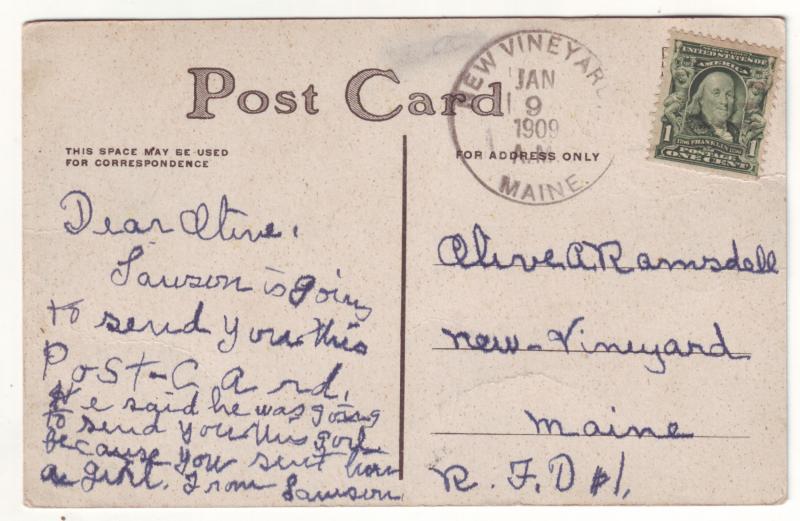 Post Card
THIS SPACE MAY BE USED
FOR CORRESPONDENCE
FOR ADDRESS ONLY
NEW VINEYARD
JAN
9
1909
A.M.
MAINE
UNITED STATES OF
AMERICA
1 FRANKLIN 1
POSTAGE
ONE CENT
Dear Olive,
Lawson is going
to send you this
Post-Card,
He said he was going
to send you this girl
because you sent him
a girl. From Lawson
Olive A. Ramsdell
new-Vineyard
maine
R. F. D #1,